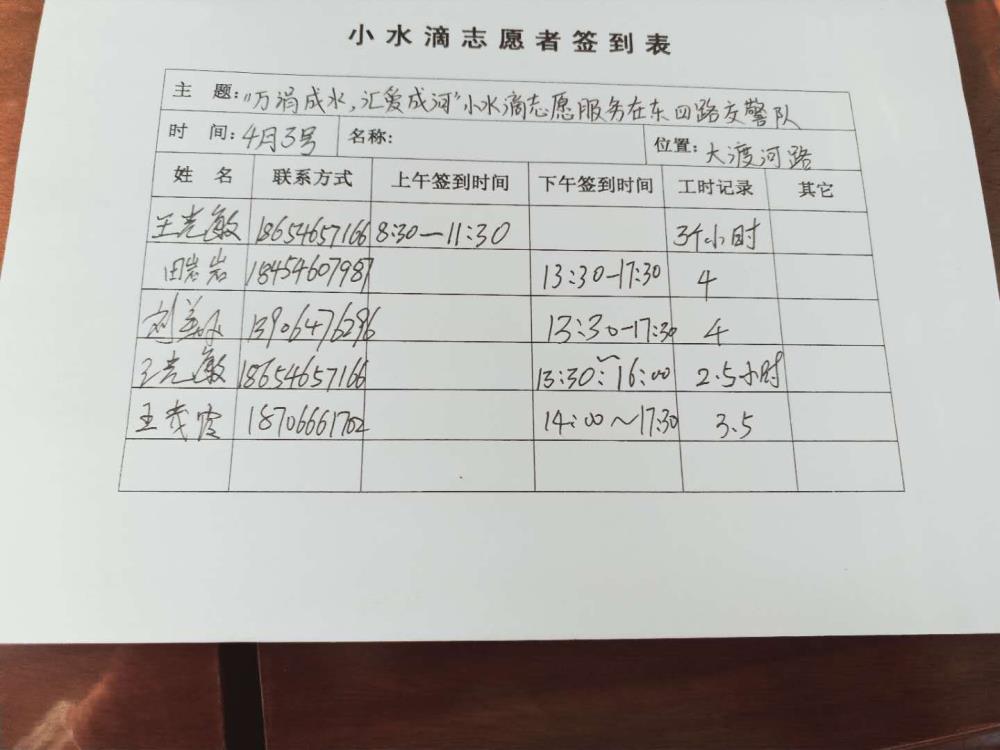 小水滴志愿者签到表
主 题:"万涓成水,汇爱成河"小水滴志愿服务在东四路交警队
时 间:4月3号 名称: 位置:大渡河路
姓 名 联系方式 上午签到时间 下午签到时间 工时记录 其它
王光敏 18654657166 8:30—11:30 3个小时
田岩岩 18454607987 13:30-17:30 4
刘美 13906476296 13:30-17:30 4
王光敏 18654657166 13:30~16:00 2.5小时
王茂霞 18706661702 14:00~17:30 3.5